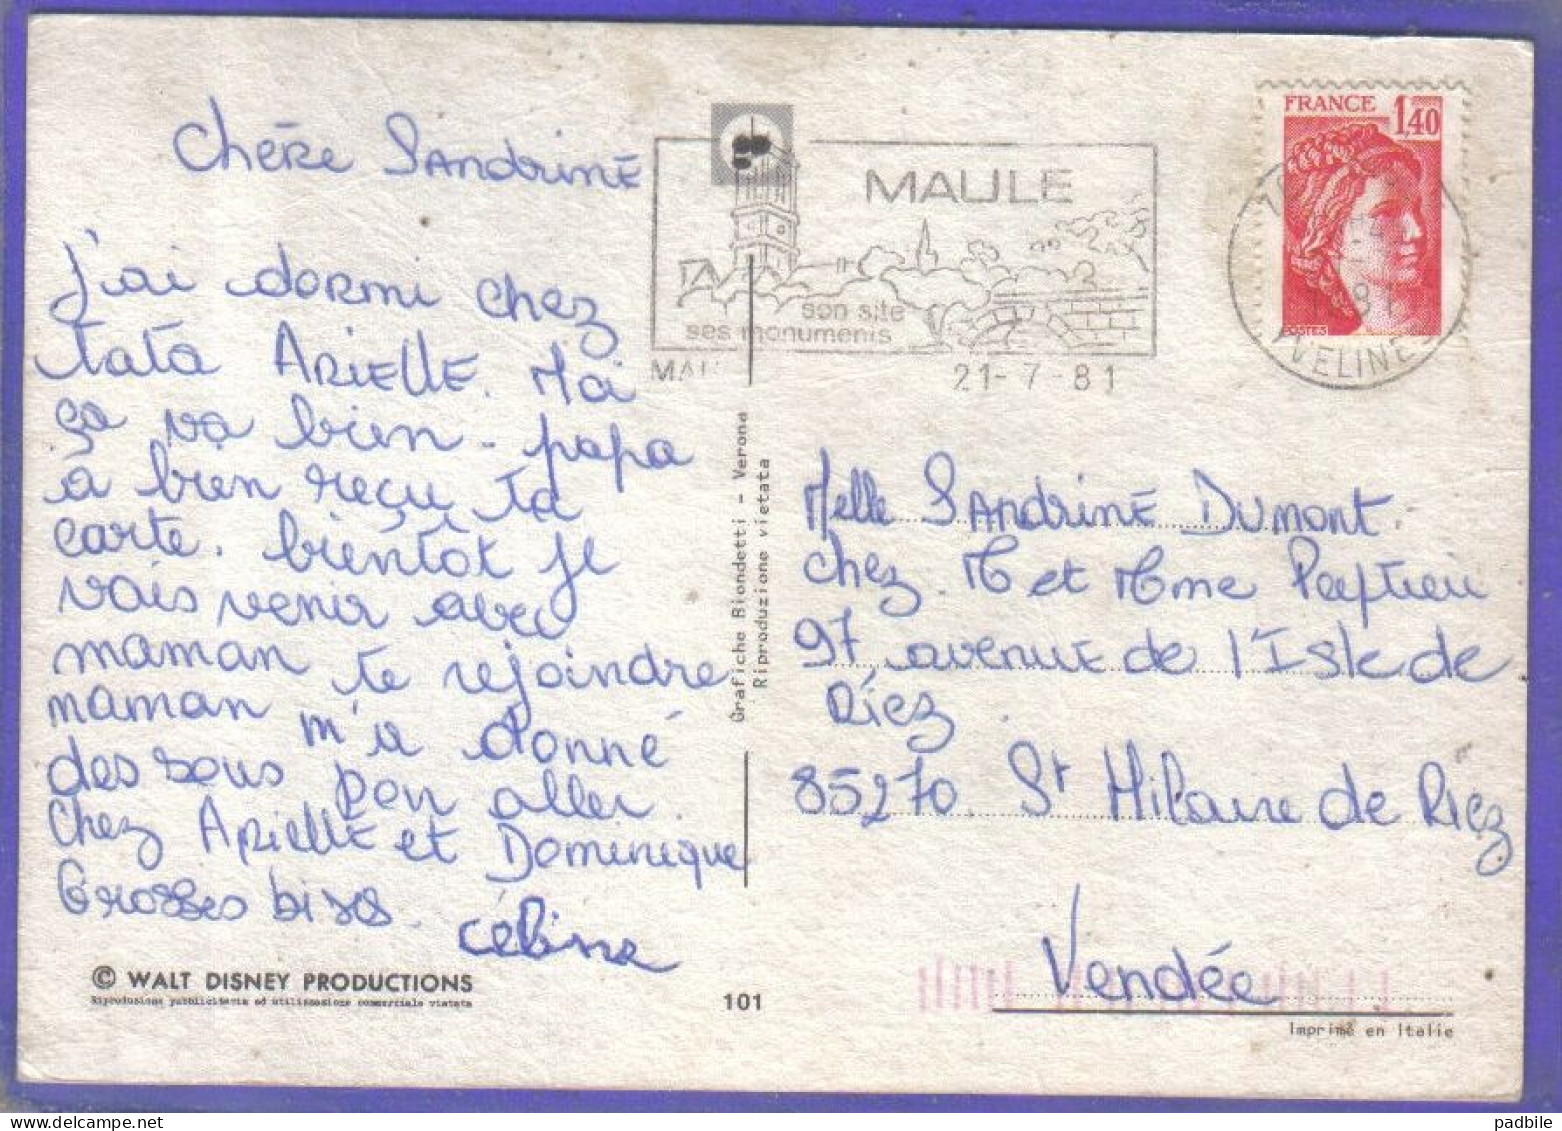 Chère Sandrine
J'ai dormi chez
tata Arielle. Moi
ça va bien - papa
a bien reçu ta
carte. bientôt je
vais venir avec
maman te rejoindre
maman m'a donné
des sous pour aller
chez Arielle et Dominique
Grosses bises.
céline
© WALT DISNEY PRODUCTIONS
Riproduzione pubblicitaria ed utilizzazione commerciale vietata
101
Grafiche Biondetti - Verona
Riproduzione vietata
MAULE
son site
ses monuments
21-7-81
FRANCE 1,40
POSTES
YVELINES
Melle Sandrine Dumont.
chez M et Mme
97, avenue de l'Isle de
Riez
85270 St Hilaire de Riez
Vendée
Imprimé en Italie
padbile